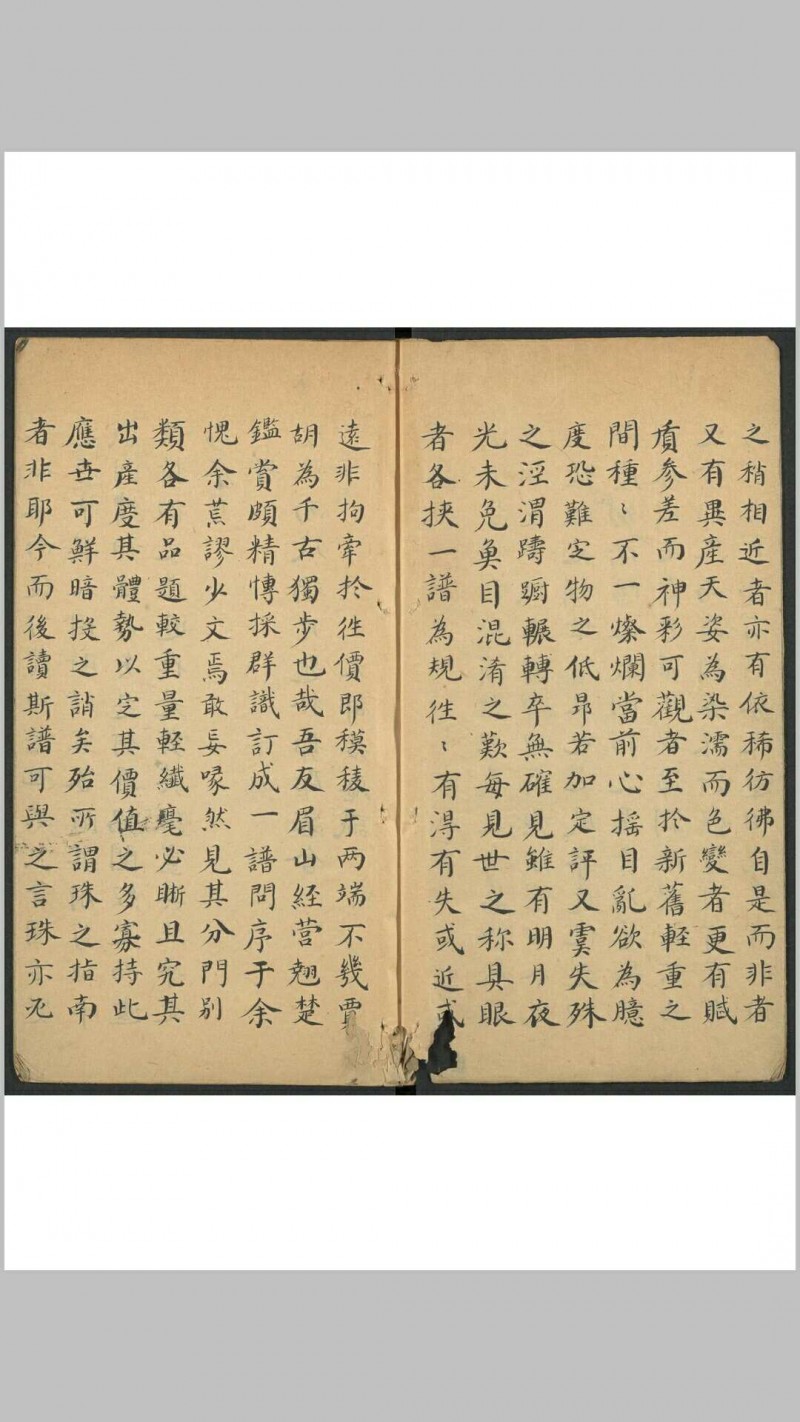 之稍相近者亦有依稀彷彿自是而非者
又有異產天姿為染濡而色變者更有賦
質參差而神彩可觀者至於新舊輕重之
間種〻不一燦爛當前心搖目亂欲為臆
度恐難定物之低昂若加定評又虞失殊
之淫渭躊躕輾轉卒無確見雖有明月夜
光未免魚目混淆之歎每見世之称具眼
者各挾一譜為規徃〻有淂有失或近或
遠非拘牽扵徃價即模稜于两端不幾賈
胡為千古獨步也哉吾友眉山経营翹楚
鑑賞頗精愽採群識訂成一譜問序于余
愧余荒謬少文焉敢妄喙然見其分門別
類各有品題較重量輕纖毫必晰且究其
出產度其體勢以定其價值之多寡持此
應世可鮮暗投之誚矣殆所謂珠之指南
者非耶今而後讀斯譜可與之言珠亦